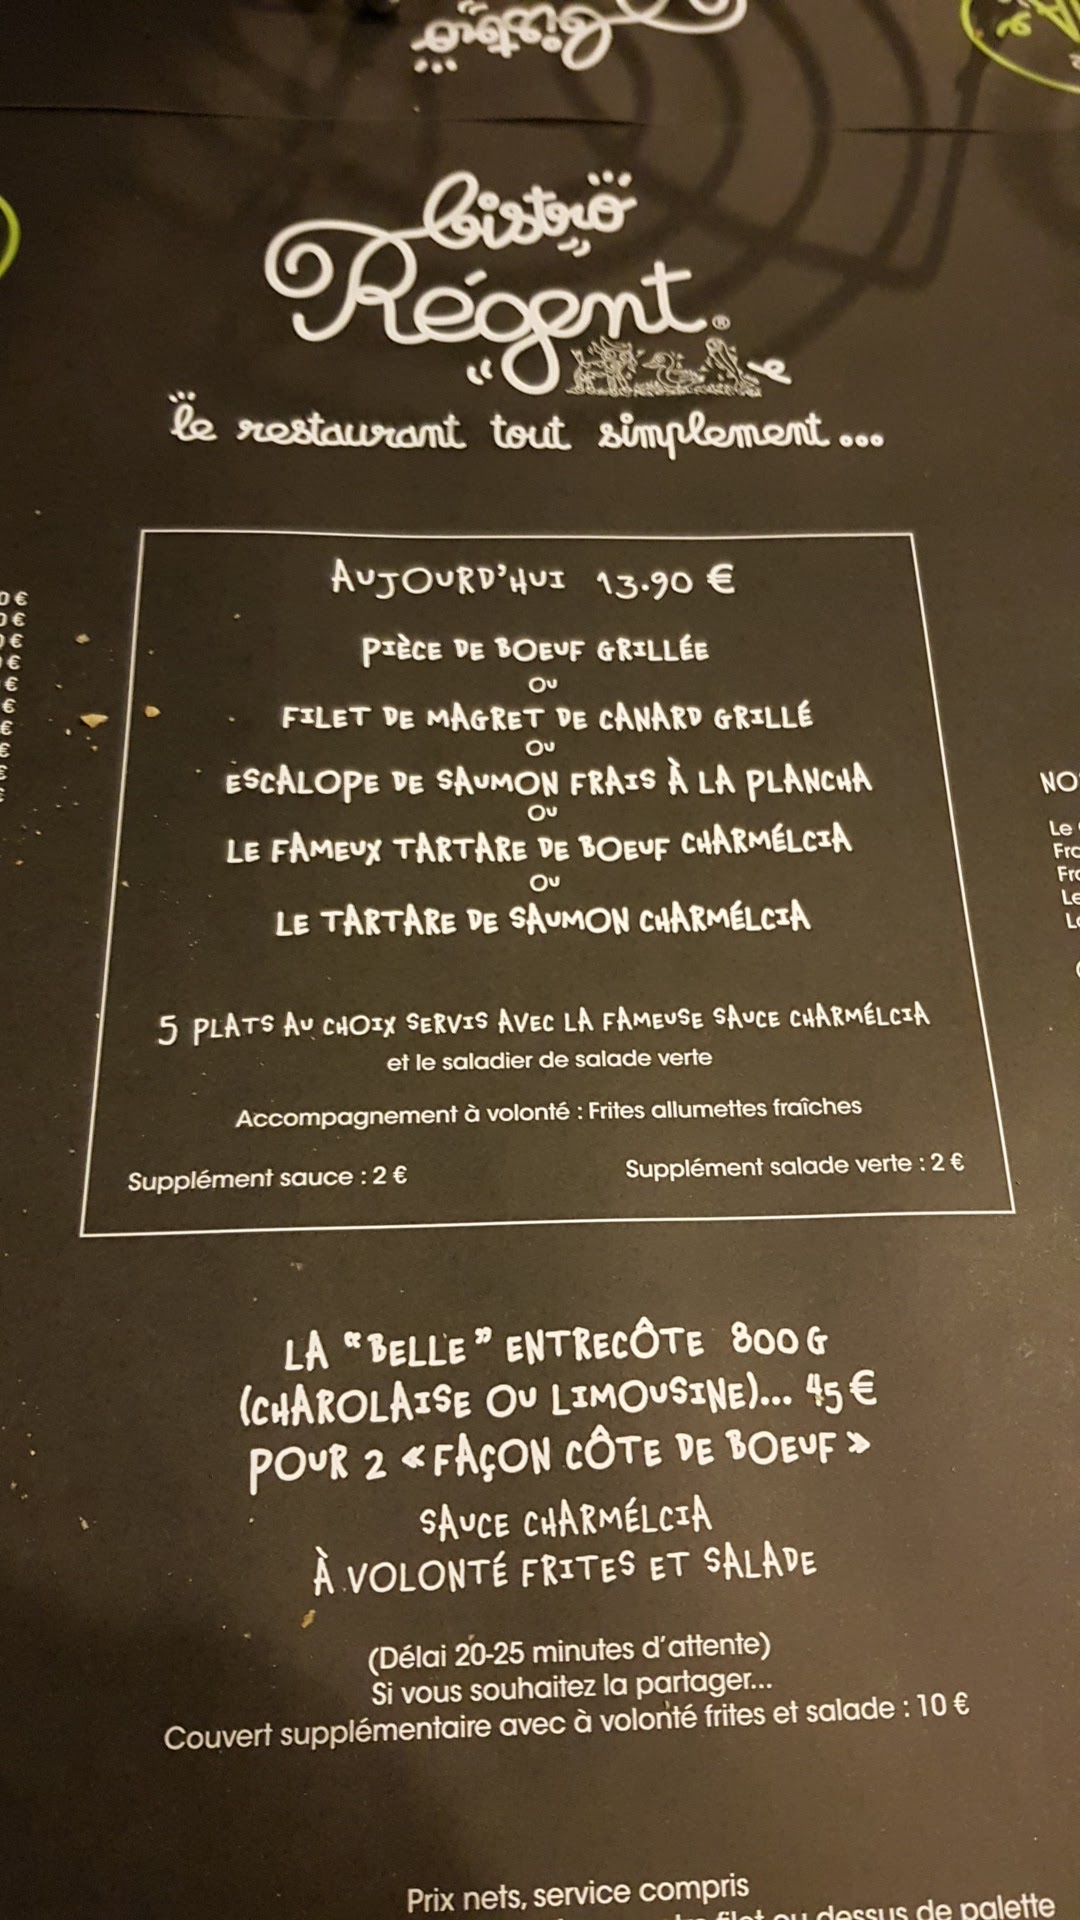 Bistro
bistro
Régent®
le restaurant tout simplement...
AUJOURD'HUI 13.90 €
PIÈCE DE BOEUF GRILLÉE
OU
FILET DE MAGRET DE CANARD GRILLÉ
OU
ESCALOPE DE SAUMON FRAIS À LA PLANCHA
OU
LE FAMEUX TARTARE DE BOEUF CHARMÉLCIA
OU
LE TARTARE DE SAUMON CHARMÉLCIA
5 PLATS AU CHOIX SERVIS AVEC LA FAMEUSE SAUCE CHARMÉLCIA
et le saladier de salade verte
Accompagnement à volonté : Frites allumettes fraîches
Supplément sauce : 2 €
Supplément salade verte : 2 €
LA "BELLE" ENTRECÔTE 800 G
(CHAROLAISE OU LIMOUSINE)... 45 €
POUR 2 « FAÇON CÔTE DE BOEUF »
SAUCE CHARMÉLCIA
À VOLONTÉ FRITES ET SALADE
(Délai 20-25 minutes d'attente)
Si vous souhaitez la partager...
Couvert supplémentaire avec à volonté frites et salade : 10 €
Prix nets, service compris
filet ou dessus de palette
Le